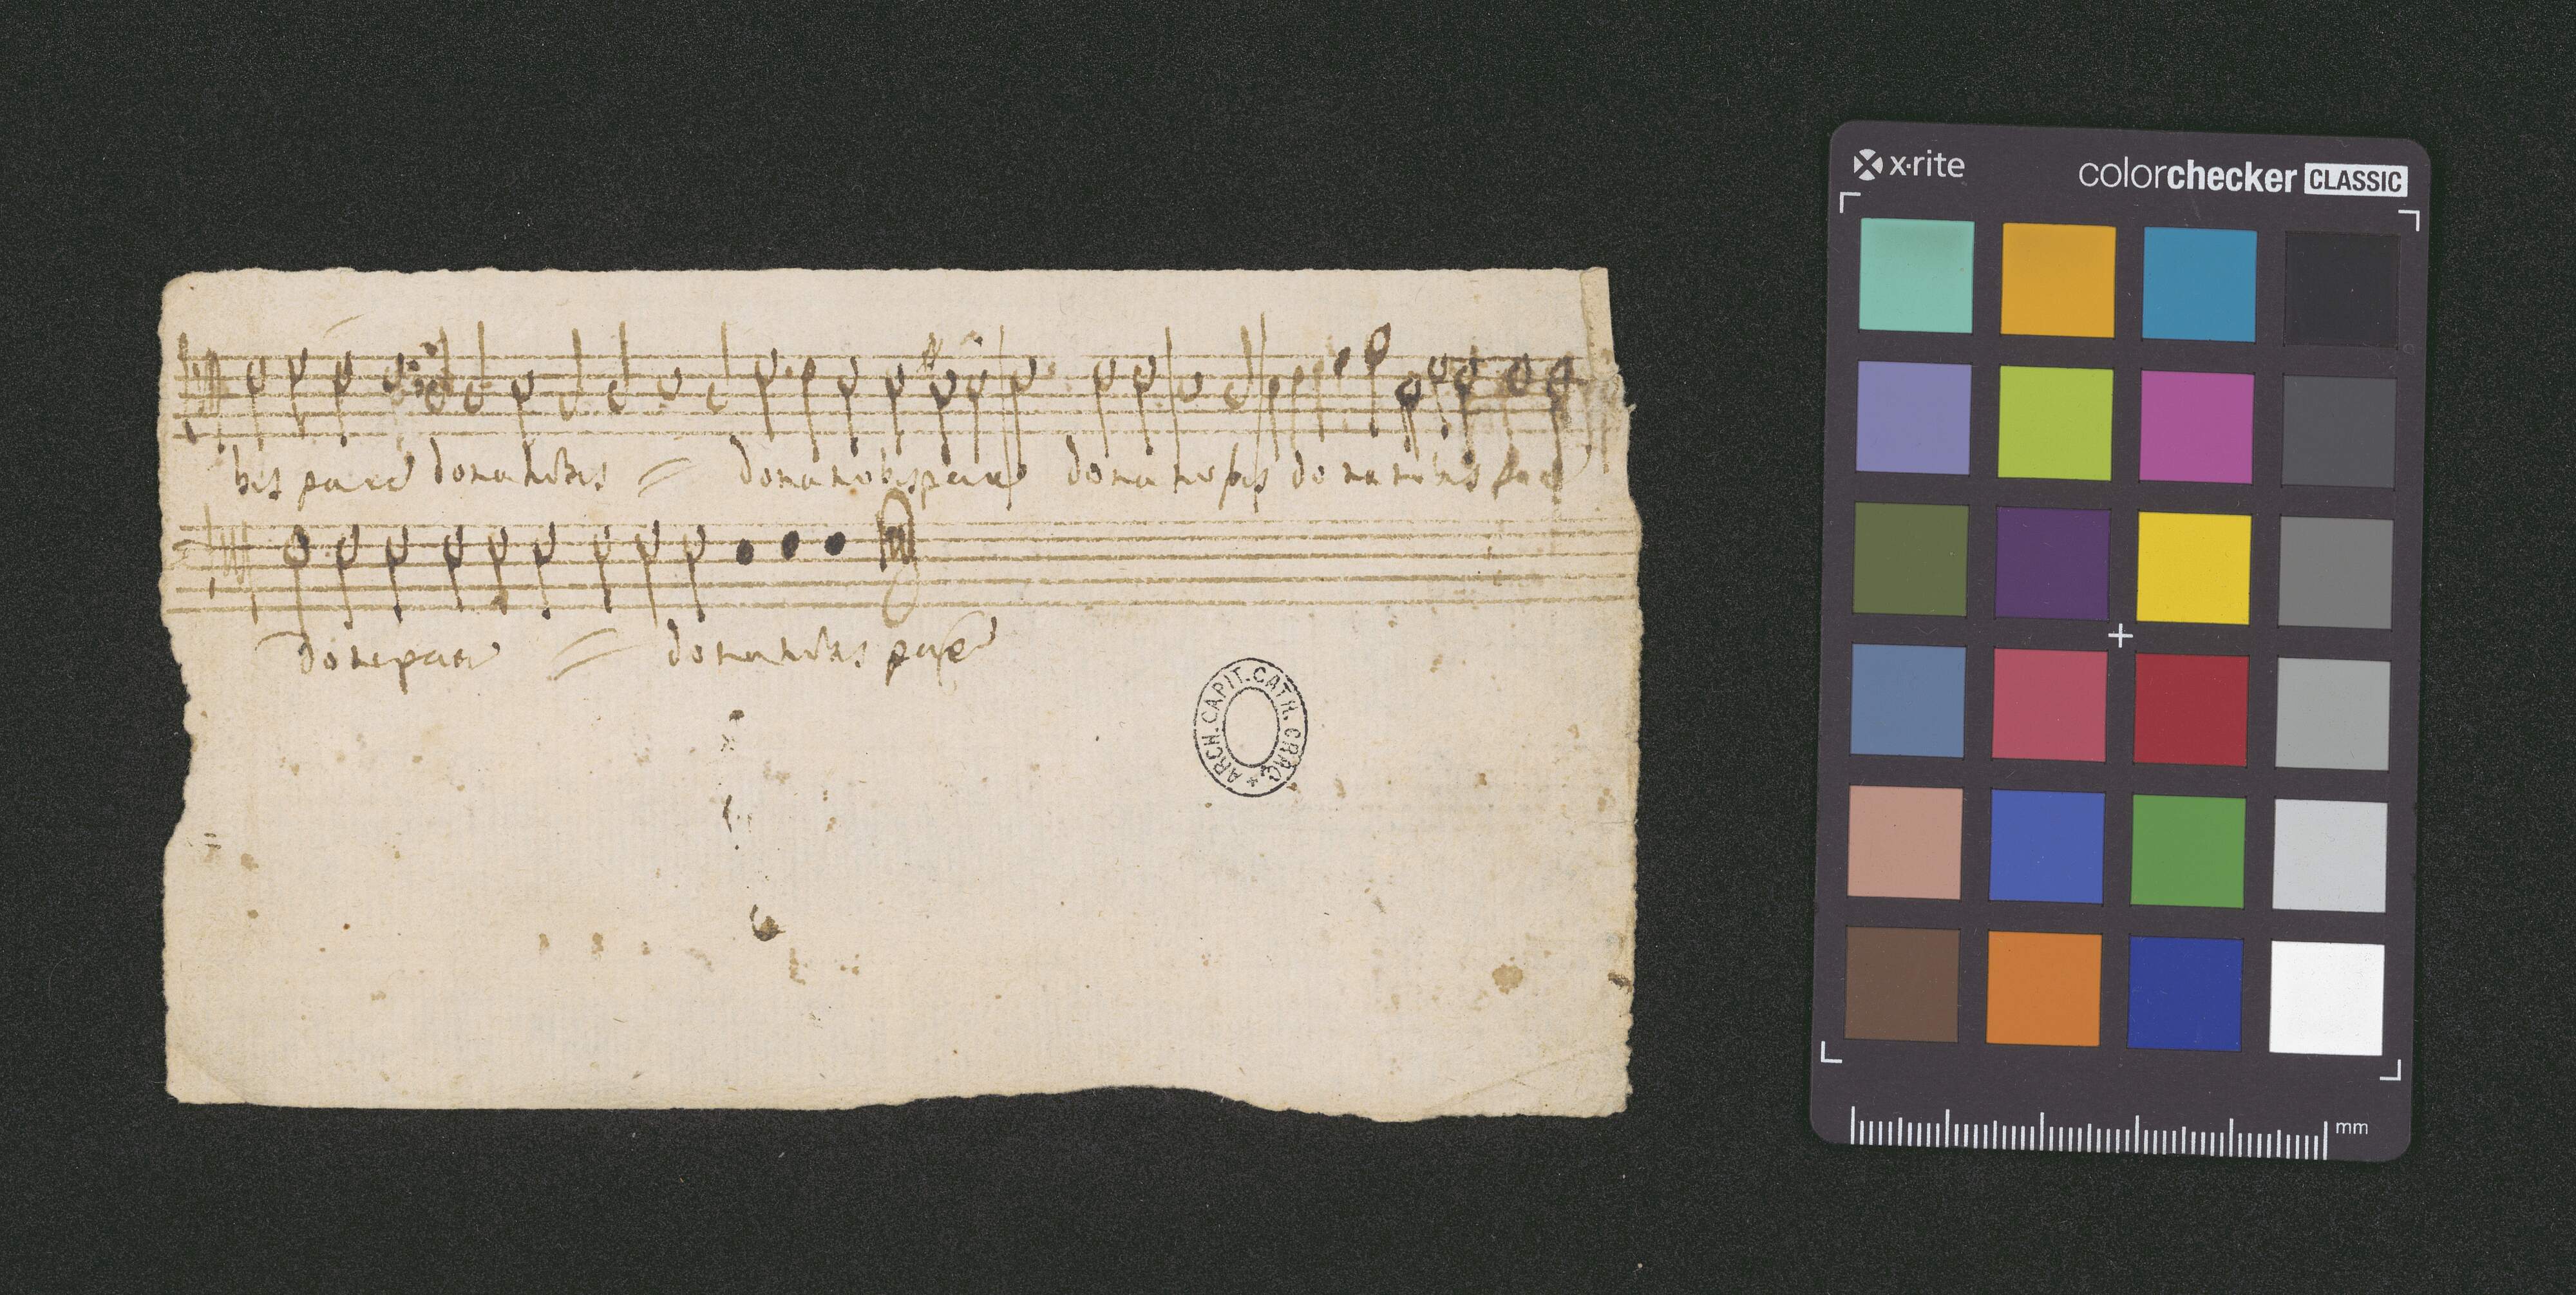 bis pacem dona nobis = dona nobis pacem dona nobis dona nobis pace
done pacem = dona nobis pacem
ARCH. CAPIT. CATH. CRAC. *
x-rite
colorchecker CLASSIC
mm